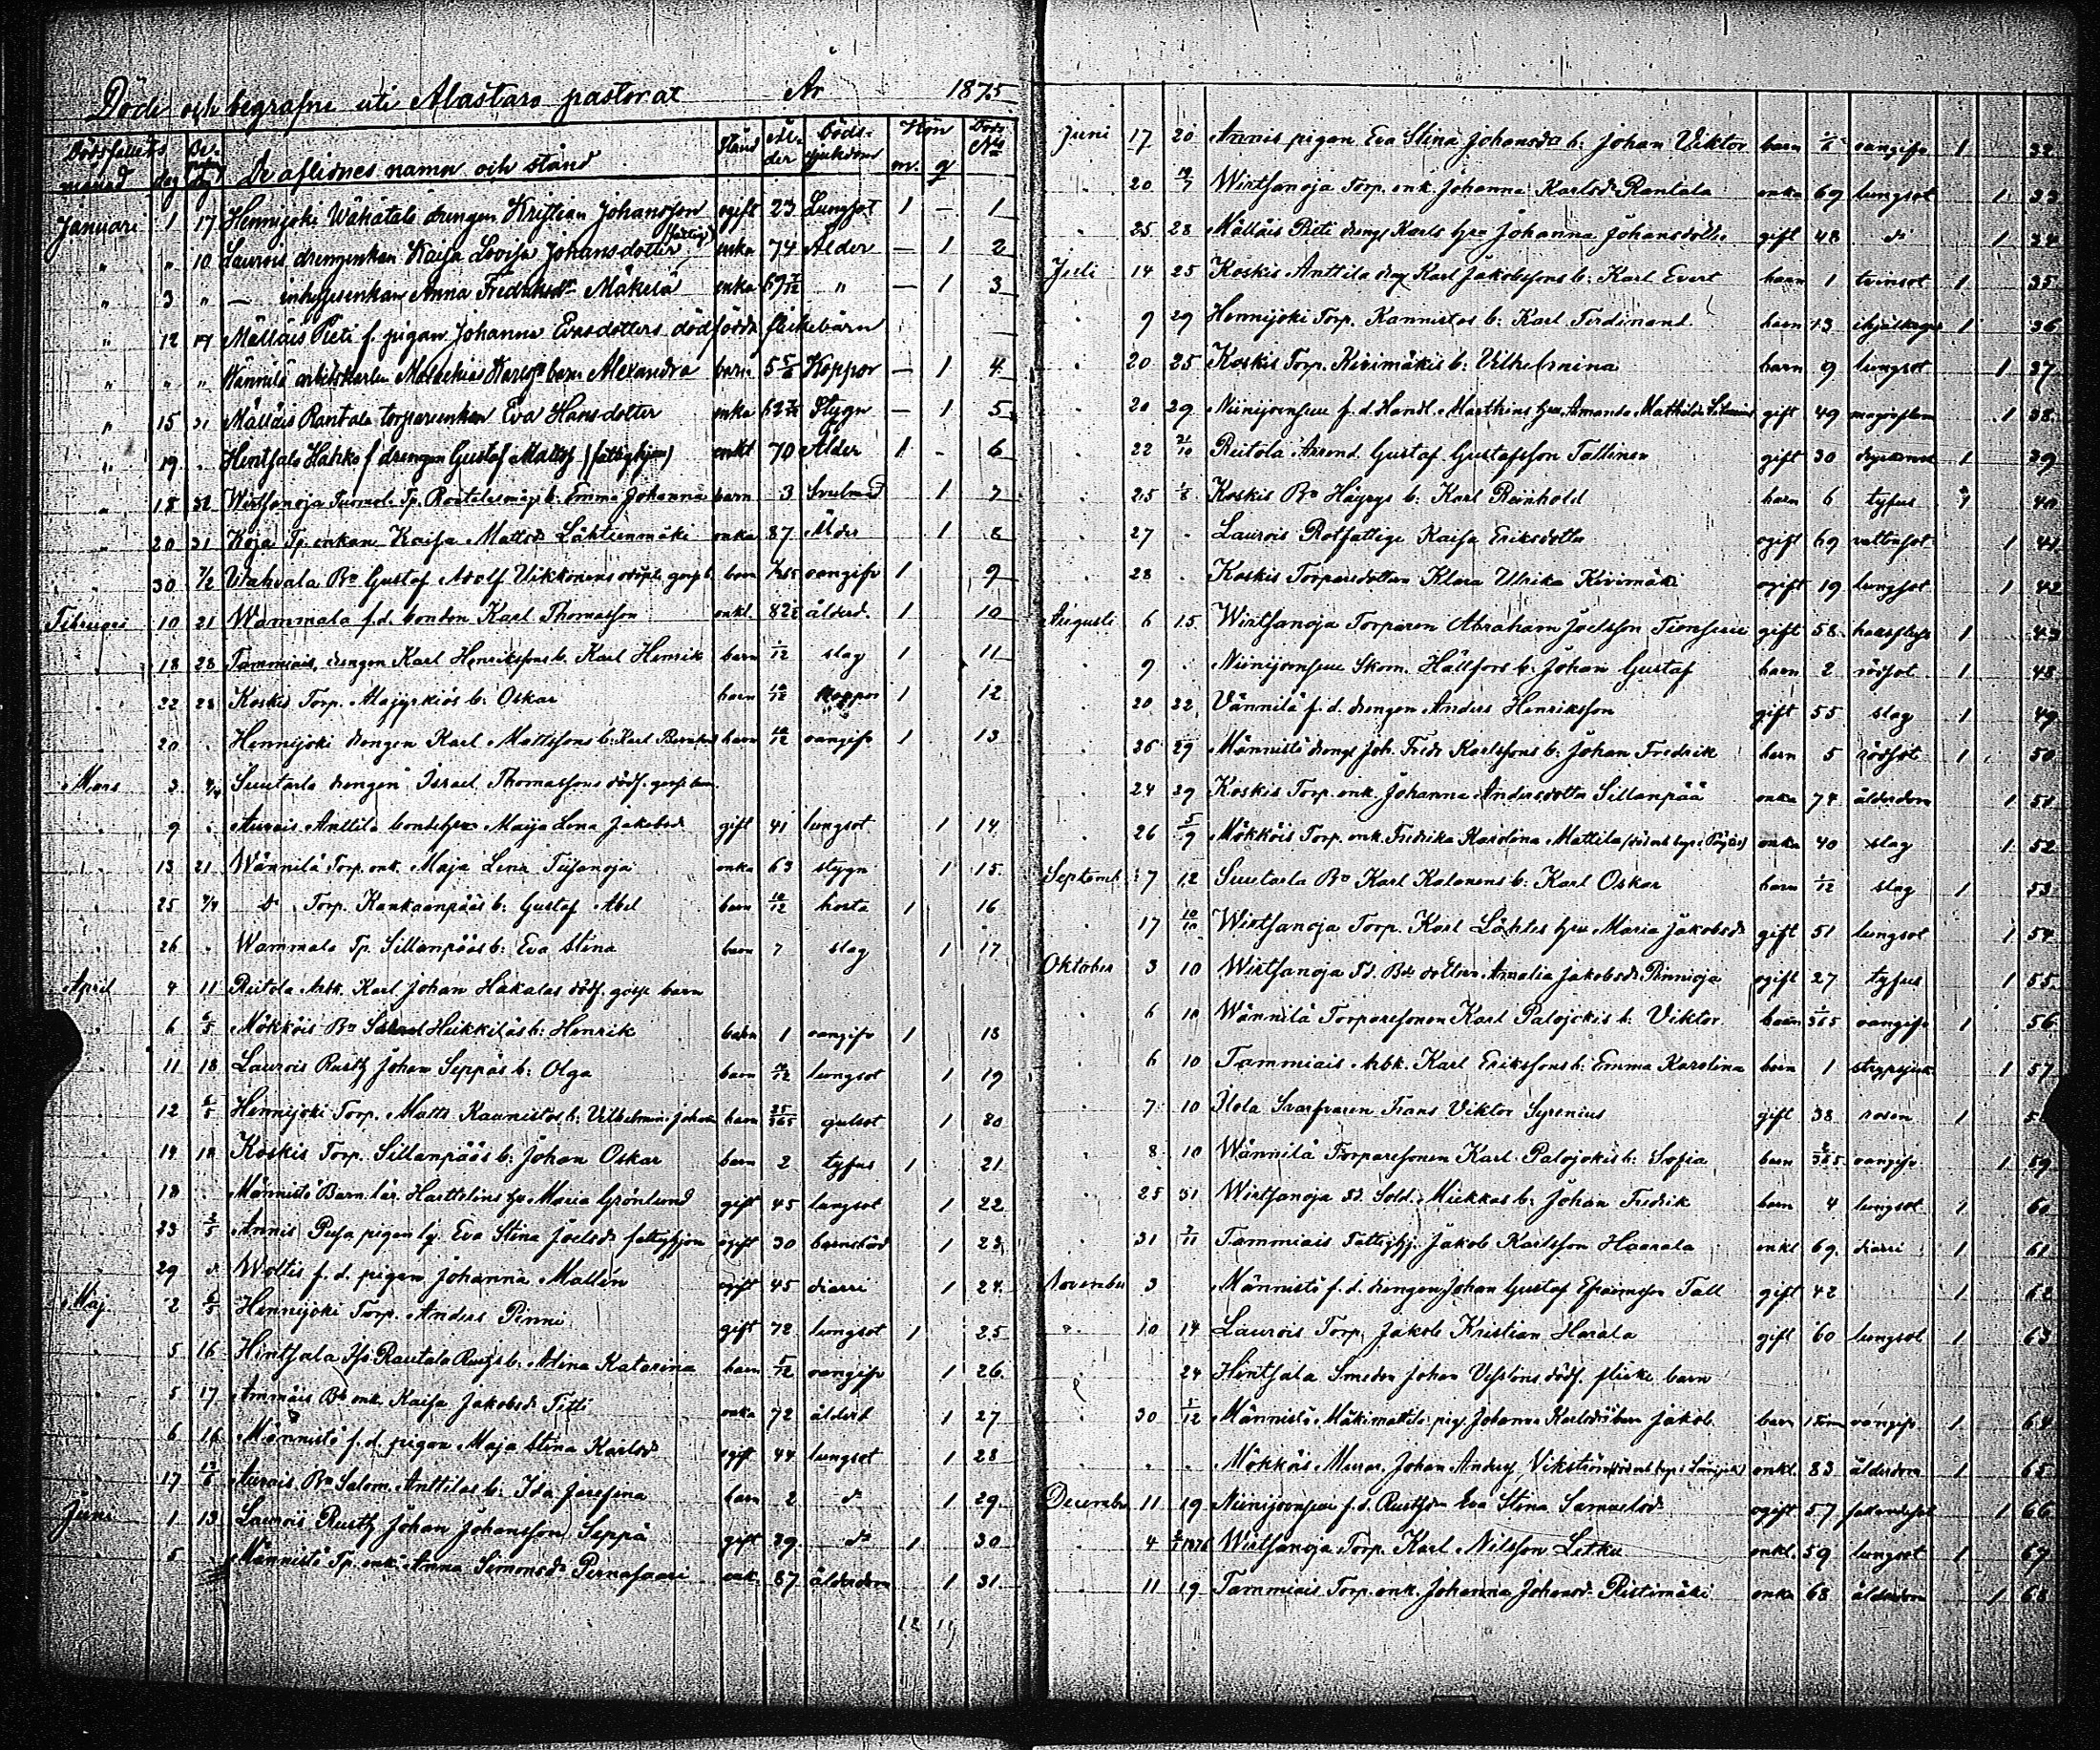 Döde och begrafne uti Alastaro pastorat År 1875
Dödsfallets månad dag De aflidnes namn och stånd stånd Ålder Dödssjukdom Kön m. q. No
Januari 1 17 Hennijoki Wähätalo drengen Kristian Johansson ogift 23 Lungsot 1 – 1
" " 10 Laurois drengenkan Kaisa Lovisa Johansdotter enka 74 Ålder – 1 2
" 3 " – inhysesenkan Anna Fredriksdr Mäkelä enka – 1 3
" 12 Mälläis Pieti f. pigan Johanna Evasdotters dödfödda flickebarn
" " " Wännilä Karlss barn Alexandra barn 5 Koppor – 1 4
" 15 31 Mälläis Rantala torparenkan Eva Hansdotter enka Stygn – 1 5
" 19 " Hintsala Hahko f drengen Gustaf Matts (fattighjon) enkl 70 Ålder 1 – 6
" 18 Wirtsanoja b. Emma Johanna barn 3 1 7
" 20 31 Koja Tp enkan Kaisa Mattsd Lähteenmäki enka 87 Ålder 1 8
" 30 7/2 Gustaf Adolf barn oangifv 1 9
Februari 10 21 Wammala f.d. bonden Karl Thomasson enkl. 82 ålderd. 1 10
18 28 Tammiais drengen Karl Henrikssons b. Karl Henrik barn 1/12 slag 1 11
22 28 Koskis Torp. b. Oskar barn 10/12 koppor 1 12
20 . Hennijoki drengen Karl Mattssons b. Karl barn 10/12 oangifv 1 13
Mars 3 4/4 Suutarla drengen Israel Thomassons dödf. gosse barn
9 . Aurais Anttila Maija Lena Jakobsd gift 41 lungsot 1 14
13 21 Wännilä Torp. enk. Maja Lena Tiisanoja enka 63 stygn 1 15
25 do Torp. Kankaanpääs b. Gustaf Abel barn 10/12 hosta 1 16
26 . Wammala Tp. Sillanpääs b. Eva Stina barn 7 slag 1 17
April 4 11 Reitola Arbk. Karl Johan Hakalas dödf. gosse barn
6 6/5 Mökköis Bo Heikkiläs b. Henrik barn 1 oangifv 1 18
11 18 Laurois Rusth Johan Seppäs b. Olga barn lungsot 1 19
12 6/5 Hennijoki Torp. Matts Kaunistos b. Vilhelmina barn 25/365 gulsot 1 20
14 18 Koskis Torp. Sillanpääs b. Johan Oskar barn 2 tyfus 1 21
18 . Männistö Barn lär. hu Maria Grönlund gift 45 lungsot 1 22
23 2/5 Annis Pusa pigan Eva Stina Joelsd fattighjon ogift 30 barnsbörd 1 23
29 Woltis f. d. pigan Johanna Mallén ogift 45 diarri 1 24
Maj 2 6/5 Hennijoki Torp. Anders Pinni gift 72 lungsot 1 25
5 16 Hintsala Rautala b. Adina Katarina barn 5/12 oangifv 1 26
5 17 Ammäis enk. Kaisa Jakobsd Titti enka 72 ålderd 1 27
6 16 Männistö f.d. pigan Maja Stina Karlsd ogift 44 lungsot 1 28
17 13/6 Aurais Bo Salom. Anttilas b. Ida Josefina barn 2 do 1 29
Juni 1 13 Laurois Rusth Johan Johansson Seppä gift 39 do 1 30
5 . Männistö Tp. enk. Anna Simonsd Pernasaari enk. 87 ålderdom 1 31
12 19
Juni 17 20 Annis pigan Eva Stina Johansdrs b. Johan Viktor barn oangifv 1 32
20 Wirtsanoja Torp. enk. Johanna Karlsd Rantala enka 69 lungsot 1 33
25 28 Mälläis Pieti drengs Karls hu Johanna Johansdotter gift 48 do 1 34
Juli 14 25 Koskis Anttila drg Karl Jakobssons b. Karl Evert barn 1 tvinsot 1 35
9 29 Hennijoki Torp. Kannistos b. Karl Ferdinand barn 13 1 36
20 25 Koskis Torp. Kivimäkis b. Vilhelmina barn 9 lungsot 1 37
20 29 Niinijoensuu f. d. Handl. hu Amanda Mathilda gift 49 1 38
22 Reitola Arrend. Gustaf Gustafsson Tallinen gift 30 1 39
25 1/8 Koskis Bo b. Karl Reinhold barn 6 tyfus 1 40
27 . Laurois Rotfattige Kaisa Eriksdotter ogift 69 vattusot 1 41
28 . Koskis Torparedottern Klara Ulrika Kivimäki ogift 19 lungsot 1 42
Augusti 6 15 Wirtsanoja Torparen Abraham Joelsson Tiensuu gift 58 1 43
9 . Niinijoensuu Skom. Hällfors b. Johan Gustaf barn 2 rödsot 1 48
20 22 Vännilä f. d. drengen Anders Henriksson gift 55 slag 1 49
26 29 Männistö drengs Joh. Fredr Karlssons b. Johan Fredrik barn 5 rödsot 1 50
24 29 Koskis Torp. enk. Johanna Andersdotter Sillanpää enka 74 ålderdom 1 51
26 5/9 Mökköis Torp. enk. Fredrika Karolina Mattila enka 40 slag 1 52
Septemb. 7 12 Suutarla Bo Karl Katanens b. Karl Oskar barn 1/12 slag 1 53
17 10/10 Wirtsanoja Torp. Karl Lähtes hu Maria Jakobsd gift 51 lungsot 1 54
Oktober 3 10 Wirtsanoja Bds dottern Amalia Jakobsd Pinnioja ogift 27 tyfus 1 55
6 10 Wännilä Torparesonen Karl Palojokis b. Viktor barn 1/365 oangifv 1 56
6 10 Tammiais Arbk. Karl Erikssons b. Emma Karolina barn 1 strypsjuk 1 57
7 10 Ilola Svarfvaren Frans Viktor Syrenius gift 38 rosen 1
8 10 Wännilä Torparesonen Karl Palojokis b. Sofia barn 2/365 oangifv 1 59
25 31 Wirtsanoja Sold. Miekkas b. Johan Fredrik barn 4 lungsot 1 60
31 7/11 Tammiais Fattighj. Jakob Karlsson Haarala enkl 69 diarri 1 61
November 3 Männistö f. d. drengen Johan Gustaf Efraimsson Tall gift 42 1 62
10 14 Laurois Torp. Jakob Kristian Harala gift 60 lungsot 1 63
24 Hintsala Smeden Johan dödf. flicke barn
30 5/12 Männistö Mäkimattila pig. Johanna Karlsdrs barn Jakob barn oangifv 1 64
. . . Mökköis Murar. Johan Anders Vikström enkl. 83 ålderdom 1 65
December 11 19 Niinijoensuu f.d. Eva Stina Samuelsdr ogift 57 fallandesot 1 66
4 1876 Wirtsanoja Torp. Karl Nilsson Letku enkl. 59 lungsot 1 67
11 19 Tammiais Torp. enk. Johanna Johansd Riitimäki enka 68 ålderdom 1 68